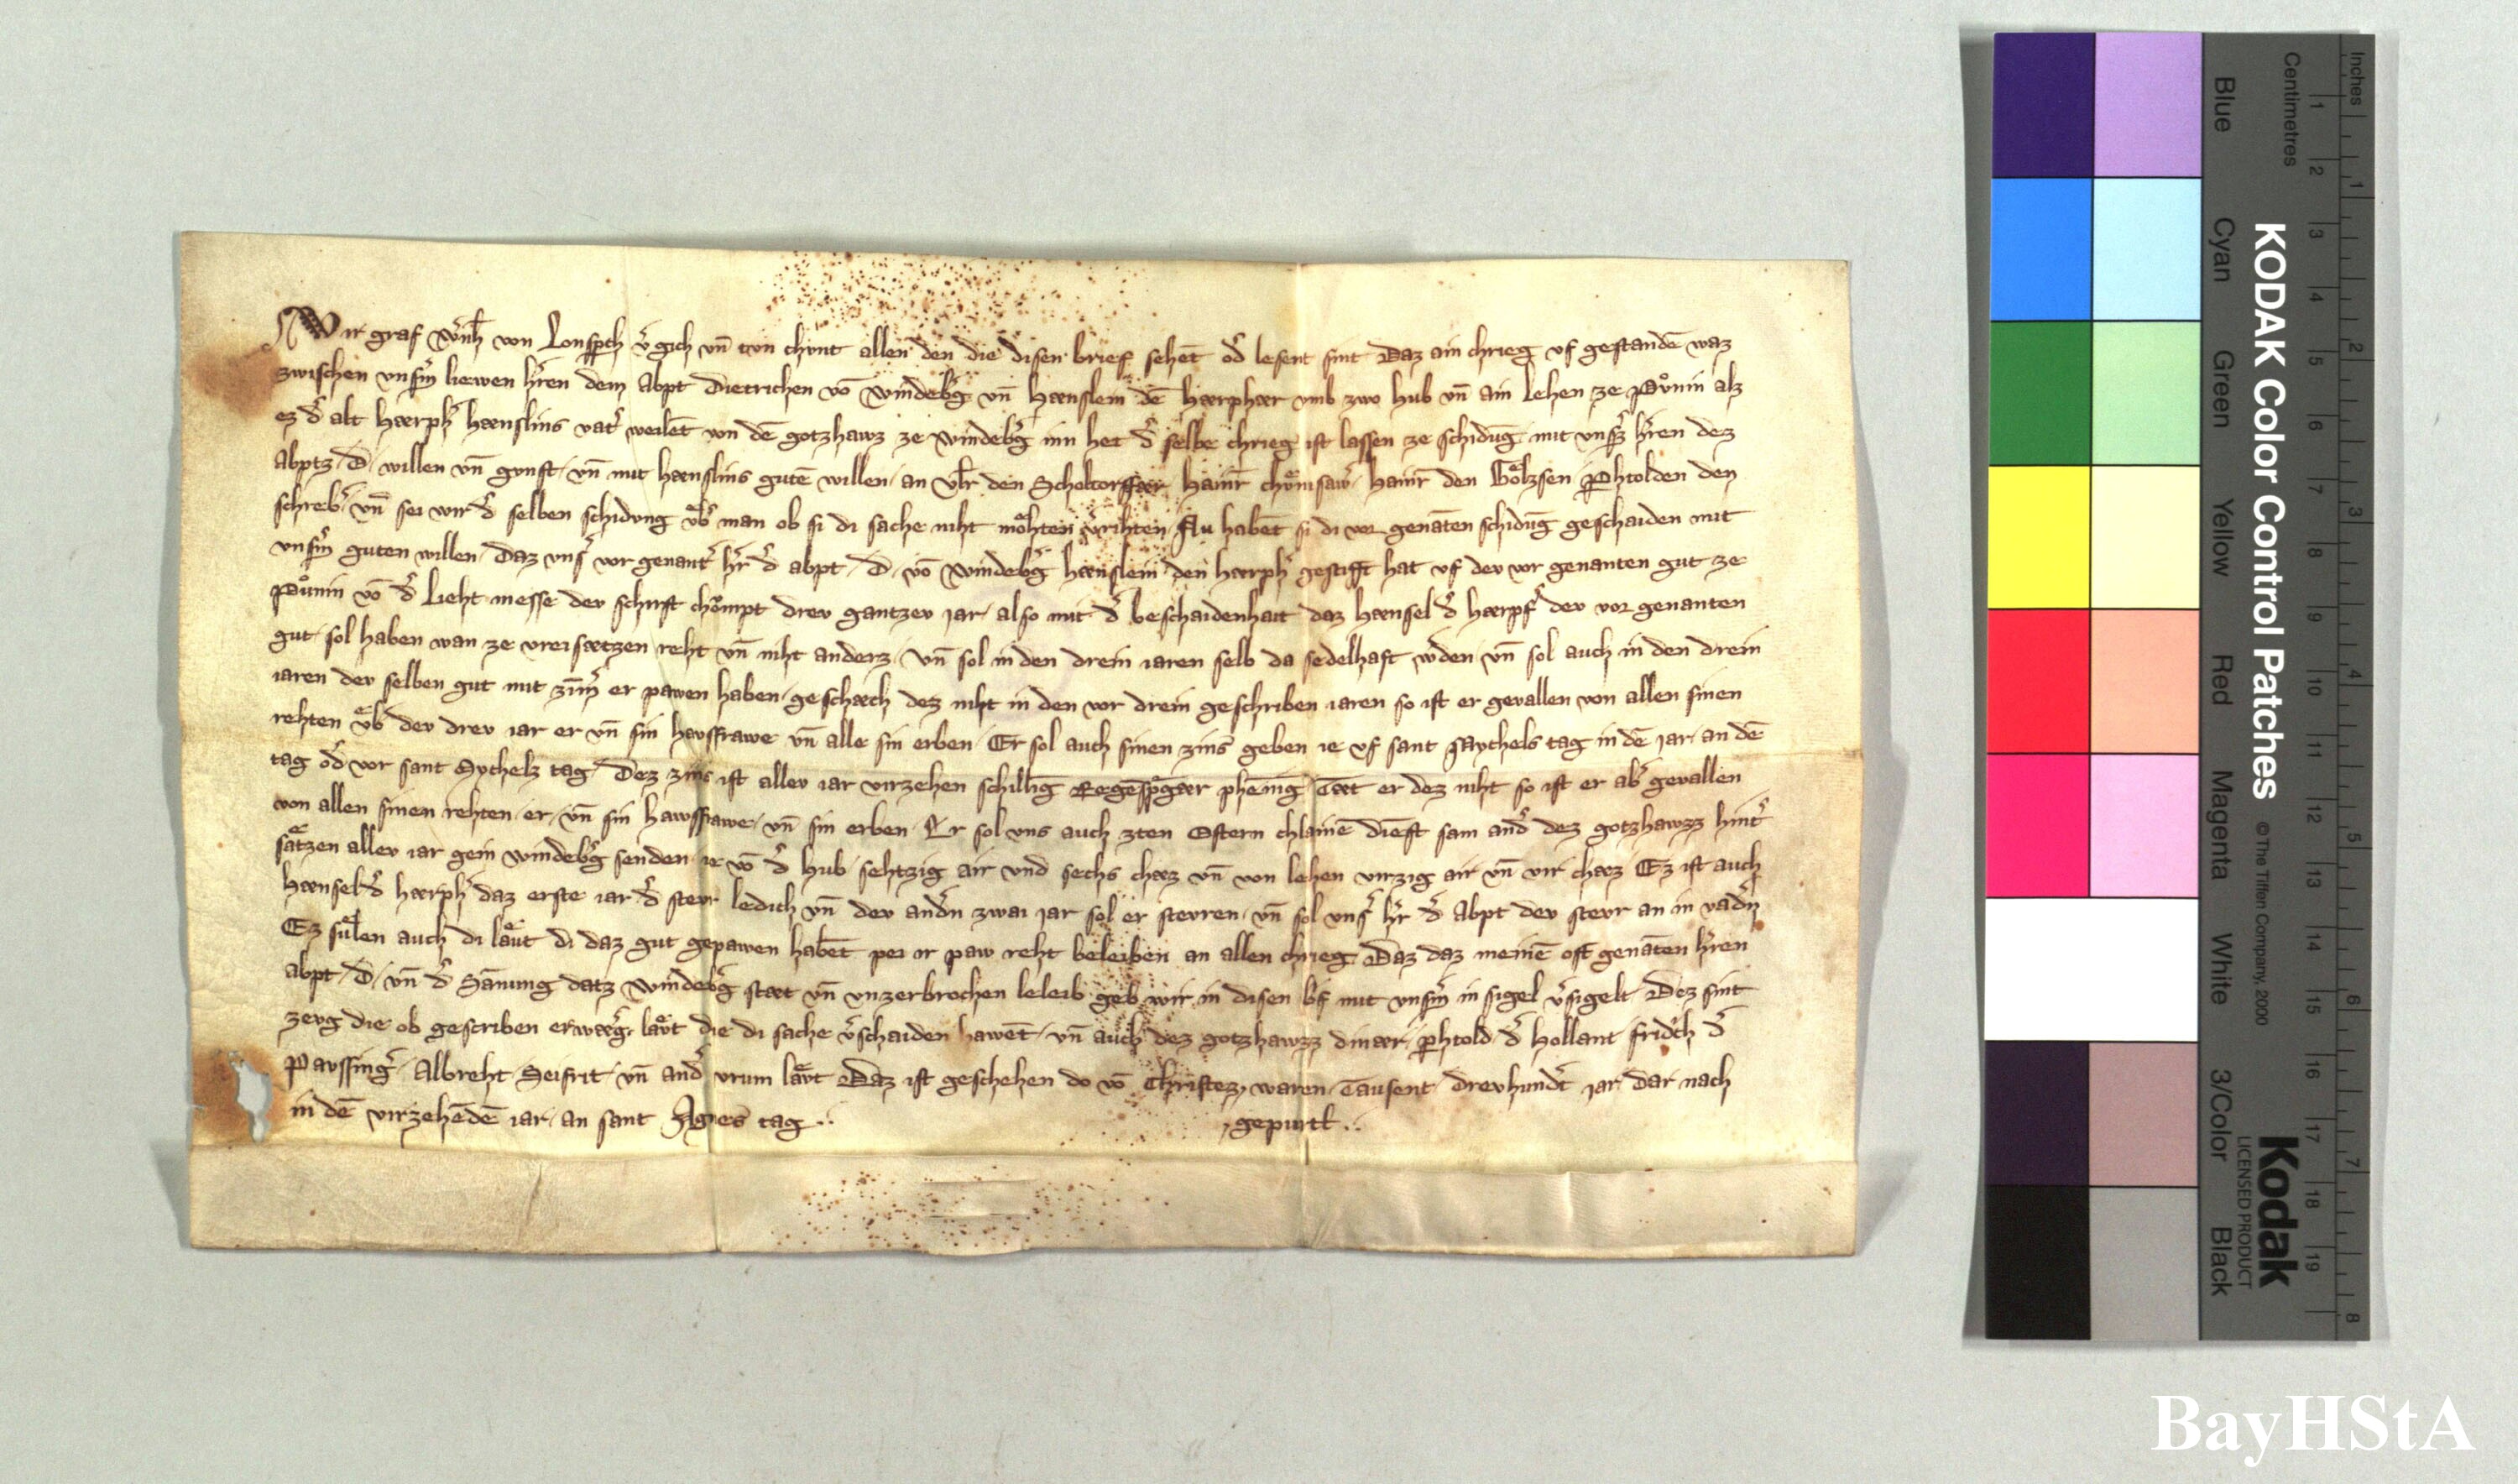 Wir graf Wͤnh̄ von Lonspch v̉gich vn̄ tvn chvnt allen den die disen brief sehēt od̉ lesent sint Daz ain chrieg vf gestandē waz
zwischen vnsm̉ liewen hr̉en dem Abpt Dietrichen vō Windeb̉g vn̄ Hænslein dē Hærphær vmb zwo hub vn̄ ain Lehen ze alz
ez d̉ alt Hærph̉ Hænslins vat̉ weilēt von dē gotzhawz ze Windeb̉g inn het d̉ selbe chrieg ist lassen ze schidūg mit vnsr̉ hr̉en dez
Abptz D willen vn̄ gvnst vn̄ mit Hænslins gutē willen an Vlr̄ den Hainr̄ Hainr̄ den den
schreib̉ vn̄ sei wir d̉ selben schidvng vͤb̉ man ob si di sache niht moͤhten v̉rihten Nu habēt si di vor genāten schidūg geschaiden mit
vnsm̉ guten willen Daz vns̉ vor genant̉ hr̉ d̉ abpt D vō Windeb̉g Hænslein den Hærph̉ gestifft hat vf dev vor genanten gut ze
vō d̉ Lieht messe dev schirst choͤmpt drev gantzev jar also mit d̉ beschaidenhait daz Hænsel d̉ Hærpf̉ dev vor genanten
gut sol haben wan ze vreisætzen reht vn̄ niht anderz vn̄ sol in den drein iaren selb da sedelhaft w̉den vn̄ sol auch in den drein
iaren dev selben gut mit zīm̉ er pawen haben geschæch dez niht in den vor drein geschriben iaren so ist er gevallen von allen sinen
rehten vͤb dev drev iar er vn̄ sin havsfrawe vn̄ alle sin erben Er sol auch sinen zins geben ie vf sant Mychels tag in dē jar an dē
tag od̉ vor sant Mychelz tag Dez zins ist allev iar virzehen schillīg Regespg̉ær phēnīg Tæt er dez niht so ist er ab̉ gevallen
von allen sinen rehten er vn̄ sin hawsfrawe vn̄ sin erben Er sol vns auch zten Ostern chlainē dienst sam and̉ dez gotzhawzz hint̉
saͤtzen allev iar gein Windeb̉g senden ie vō d̉ hub sehtzig air vnd sechs chæz vn̄ von lehen virzig air vn̄ vir chæz Ez ist auch
Hænsel d̉ Hærph̉ daz erste iar d̉ stevr ledich vn̄ dev and̉n zwai jar sol er stevren vn̄ sol vns̉ hr̉ d̉ Abpt dev stevr an in vad̉n
Ez suͤlen auch di laͤvt di daz gut gepawen habēt pei ir paw reht beleiben an allen chrieg Daz daz meinē oft genāten hr̉en
abpt D vn̄ d̉ Sāmung datz Windeb̉g stæt vn̄ vnzerbrochen beleib geb wir in disen bf mit vnsm̉ in sigel v̉sigelt Dez sint
zevg die ob gescriben erwærg̉ laͤvt die di sache v̉schaiden hawēt vn̄ auch dez gotzhawzz dinær phtold d̉ Hollant fridch d̉
Pavssing̉ Albreht Seifrit vn̄ and̉ vrum laͤvt Daz ist geschehen do vō Christez waren Tausent drevhund̉t jar dar nach
in dē virzehēdē iar an sant Agnes tag .. gepurtt ..
KODAK Color Control Patches
© The Tiffen Company, 2000
Kodak
LICENSED PRODUCT
Inches 1 2 3 4 5 6 7 8
Centimetres 1 2 3 4 5 6 7 8 9 10 11 12 13 14 15 16 17 18 19
Blue
Cyan
Green
Yellow
Red
Magenta
White
3/Color
Black
BayHStA